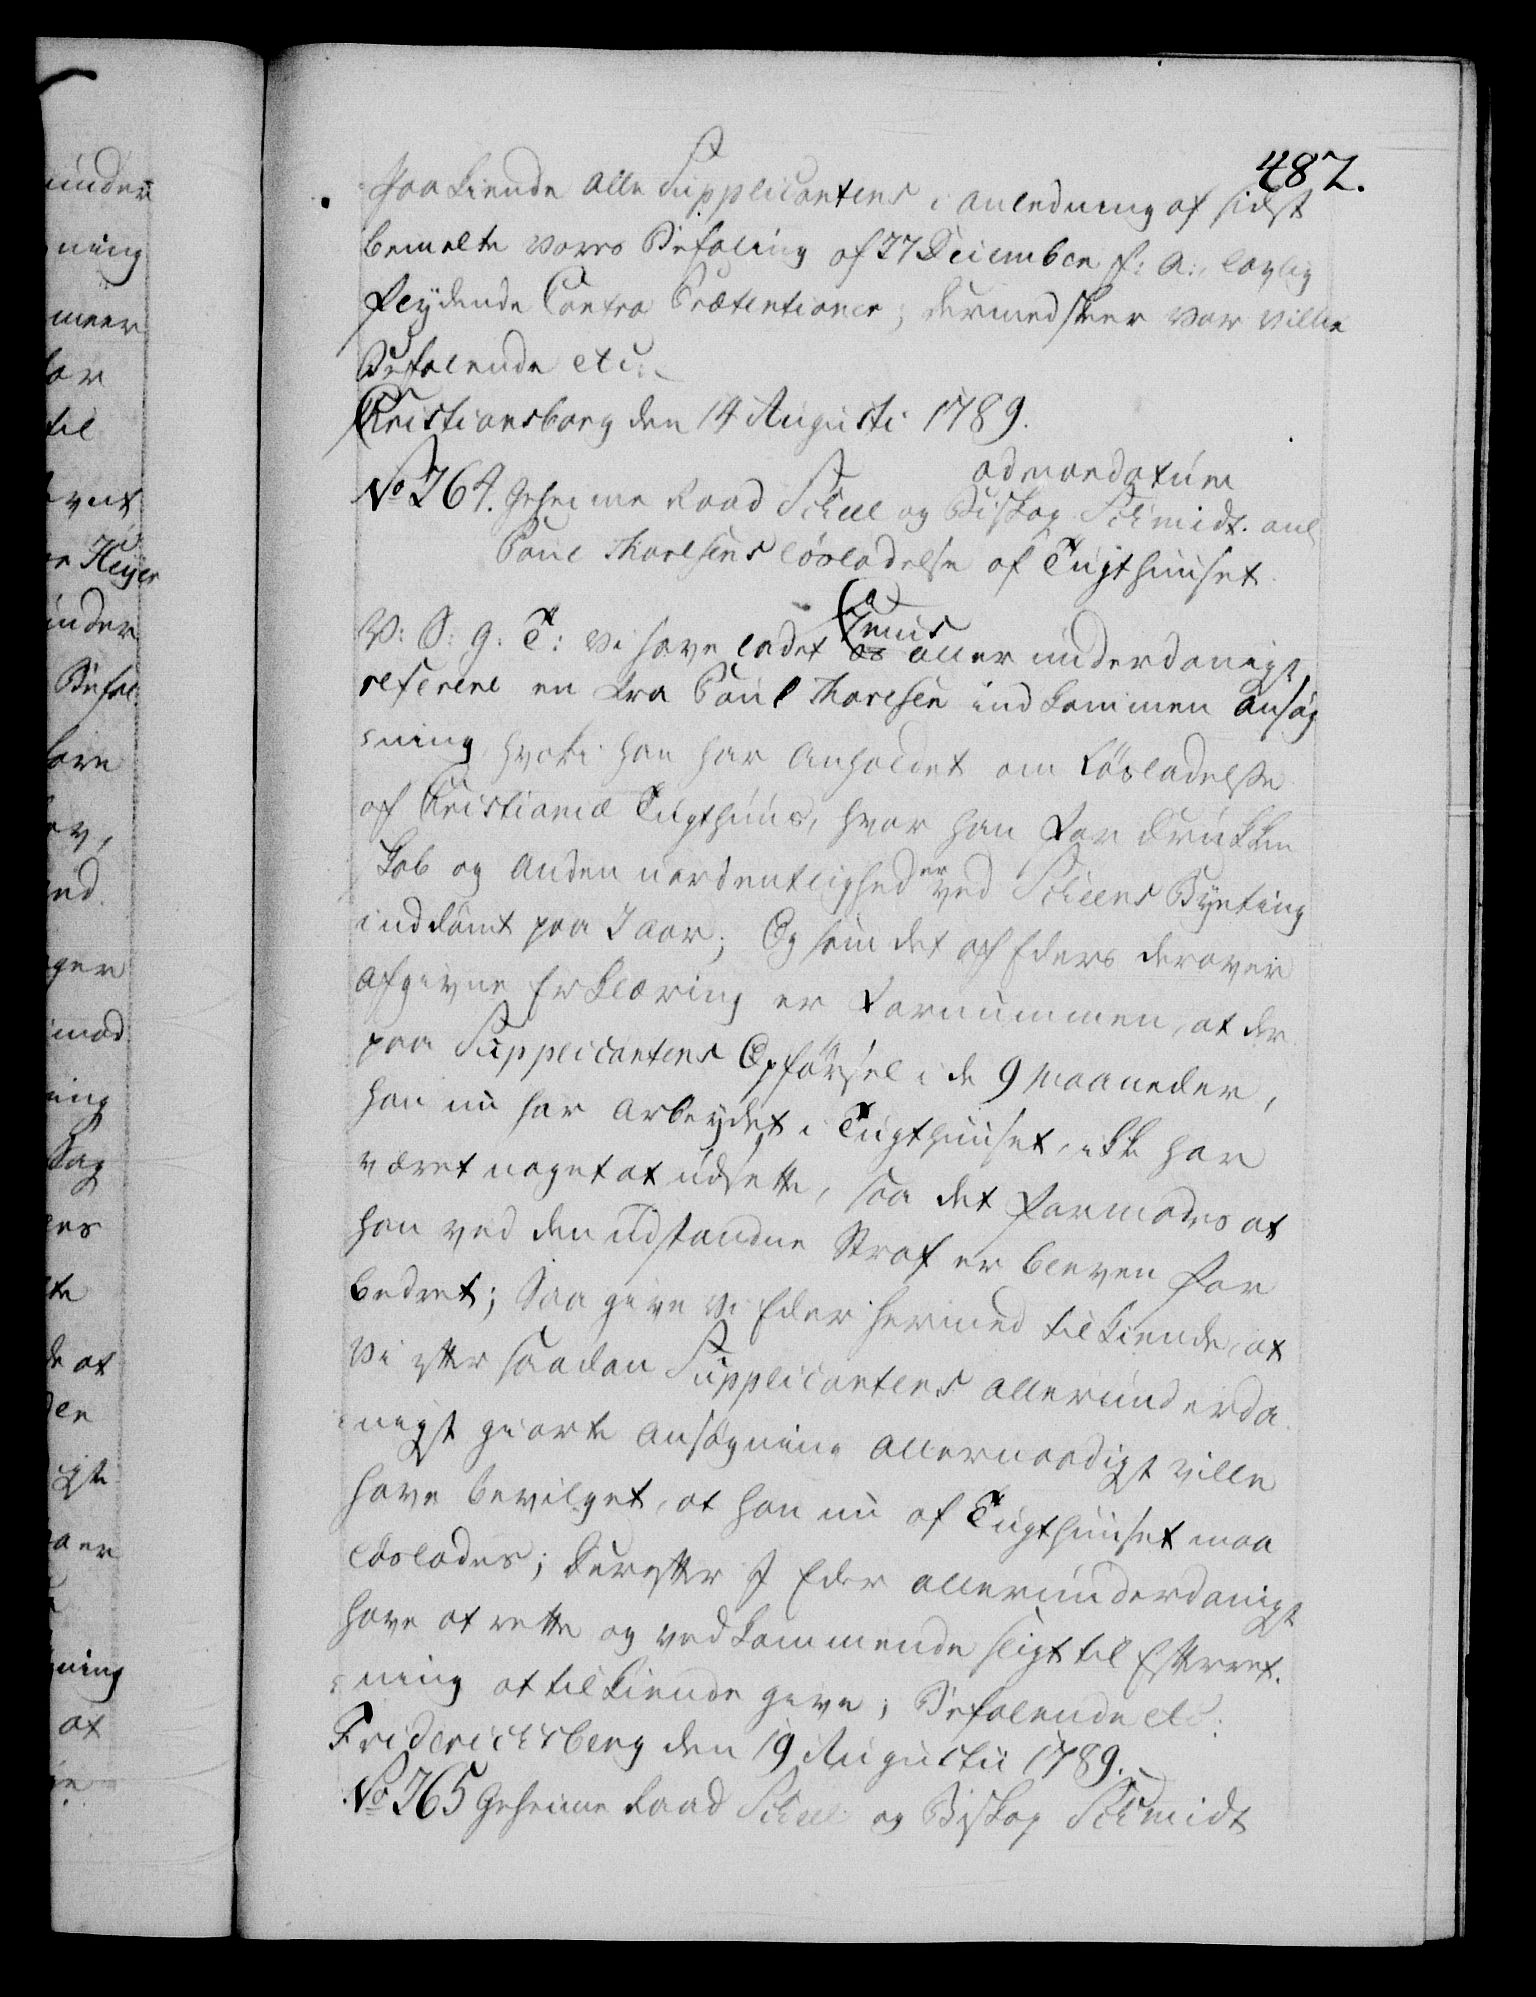 487.
paakiende alle Supplicantens i anledning af sidst
bemelte vores Befaling af 27 December f: A:, lovlig
skeydende Contra Prætentioner; dermed skeer vor villie
Befalende etc:
Christiansborg den 14 Augusti 1789.
ad mandatum
No 764. Geheime Raad Scheel og Biskop Schmidt. anl
Poul Thoresens løsladelse af Tugthuuset.
V: S: g: T: Vi have ladet os allerunderdanigst
referere en fra Poul Thoresen indkommen ansøg
ning, hvori han har anholdet om Løsladelse
af Christiania Tugthuus, hvor han for Drukken
skab og anden uordentligheder ved Scheens Byeting
inddømt paa 2 aar; Og som det af Eders derover
afgivne Erklæring er fornummen, at der
paa Supplicantens Opførsel i de 9 Maaneder,
han nu har arbeydet i Tugthuuset, ikke har
været noget at udsette, saa det formodes at
han ved den udstandne Straf er bleven for
bedret; Saa give Vi Eder hermed tilkiende, at
Vi efter saadan Supplicantens allerunderda
nigst giorte ansøgning allernaadigst ville
have bevilget, at han nu af Tugthuuset maa
løslades; Derefter I Eder allerunderdanigst
have at rette og vedkommende sligt til Efterret
ning at tilkiende give; Befalende etc:
Friderichsberg den 19 Augustii 1789.
No 765 Geheime Raad Scheel og Biskop Schmidt